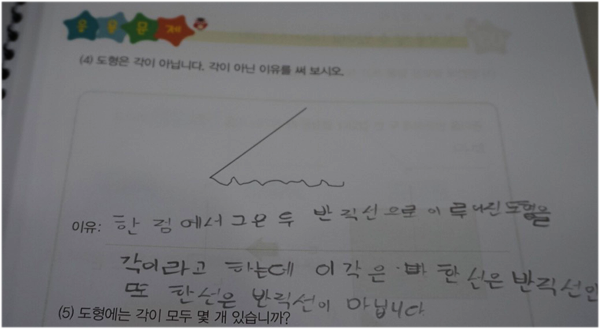 응용문제
(4) 도형은 각이 아닙니다. 각이 아닌 이유를 써 보시오.
이유: 한 점에서 그은 두 반직선으로 이루어진 도형을
각이라고 하는데 이 각은 한 선은 반직선인
또 한선은 반직선이 아닙니다
(5) 도형에는 각이 모두 몇 개 있습니까?